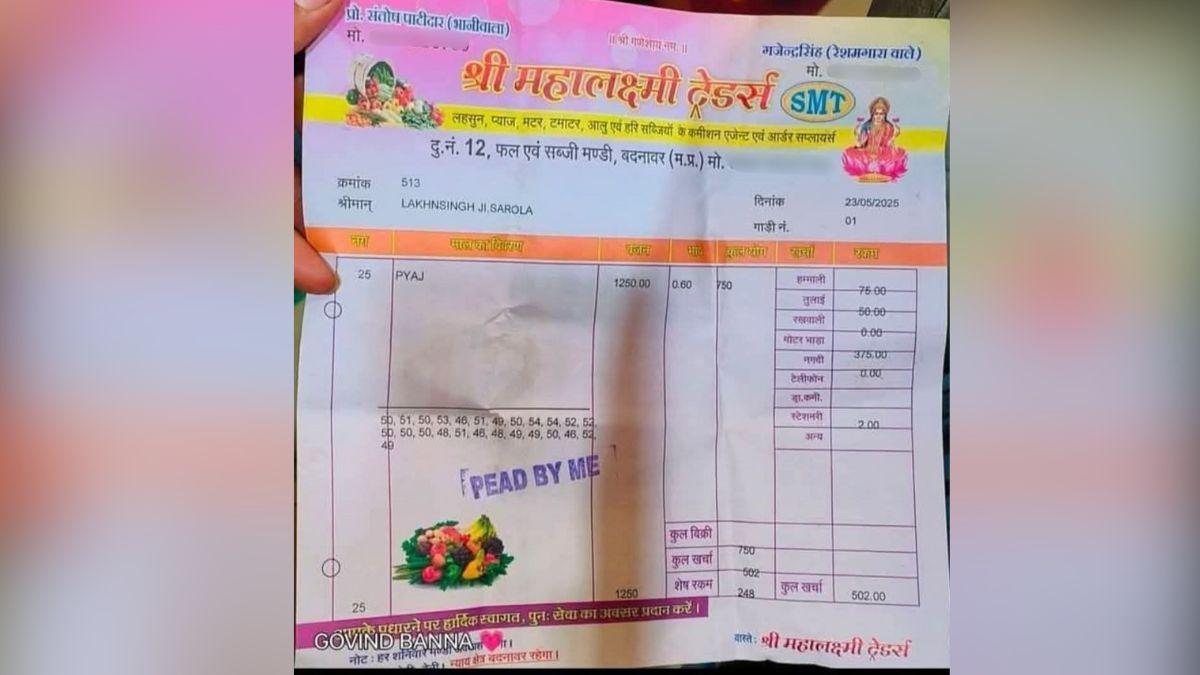 प्रो. संतोष पाटीदार (भानीवाला)
मो.
॥ श्री गणेशाय नमः ॥
गजेन्द्रसिंह (रेशमगारा वाले)
मो.
श्री महालक्ष्मी ट्रेडर्स SMT
लहसुन, प्याज, मटर, टमाटर, आलु एवं हरि सब्जियों के कमीशन एजेन्ट एवं आर्डर सप्लायर्स
दु.नं. 12, फल एवं सब्जी मण्डी, बदनावर (म.प्र.) मो.
क्रमांक 513
दिनांक 23/05/2025
श्रीमान् LAKHNSINGH JI,SAROLA
गाड़ी नं. 01
नग माल का विवरण वजन भाव कुल योग खर्चा रकम
25 PYAJ 1250.00 0.60 750
हम्माली 75.00
तुलाई 50.00
रखवाली 0.00
मोटर भाड़ा 375.00
नगदी 0.00
टेलीफोन
ड्रा.कमी.
स्टेशनरी 2.00
अन्य
50, 51, 50, 53, 46, 51, 49, 50, 54, 54, 52, 52,
50, 50, 50, 48, 51, 46, 48, 49, 49, 50, 46, 52,
49
PEAD BY ME
कुल बिक्री 750
कुल खर्चा 502
शेष रकम 248
कुल खर्चा 502.00
25 1250
पधारने पर हार्दिक स्वागत, पुनः सेवा का अवसर प्रदान करें।
GOVIND BANNA
नोट : हर शनिवार मण्डी
न्याय क्षेत्र बदनावर रहेगा।
वास्ते : श्री महालक्ष्मी ट्रेडर्स